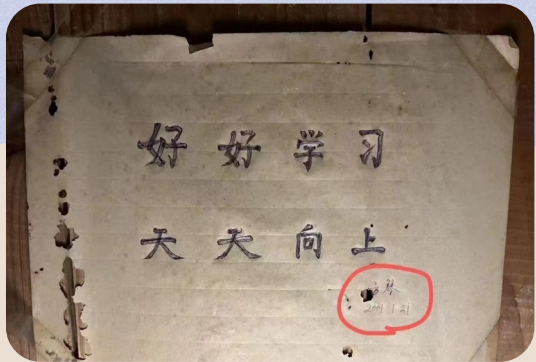 好好学习
天天向上
2001.1.21